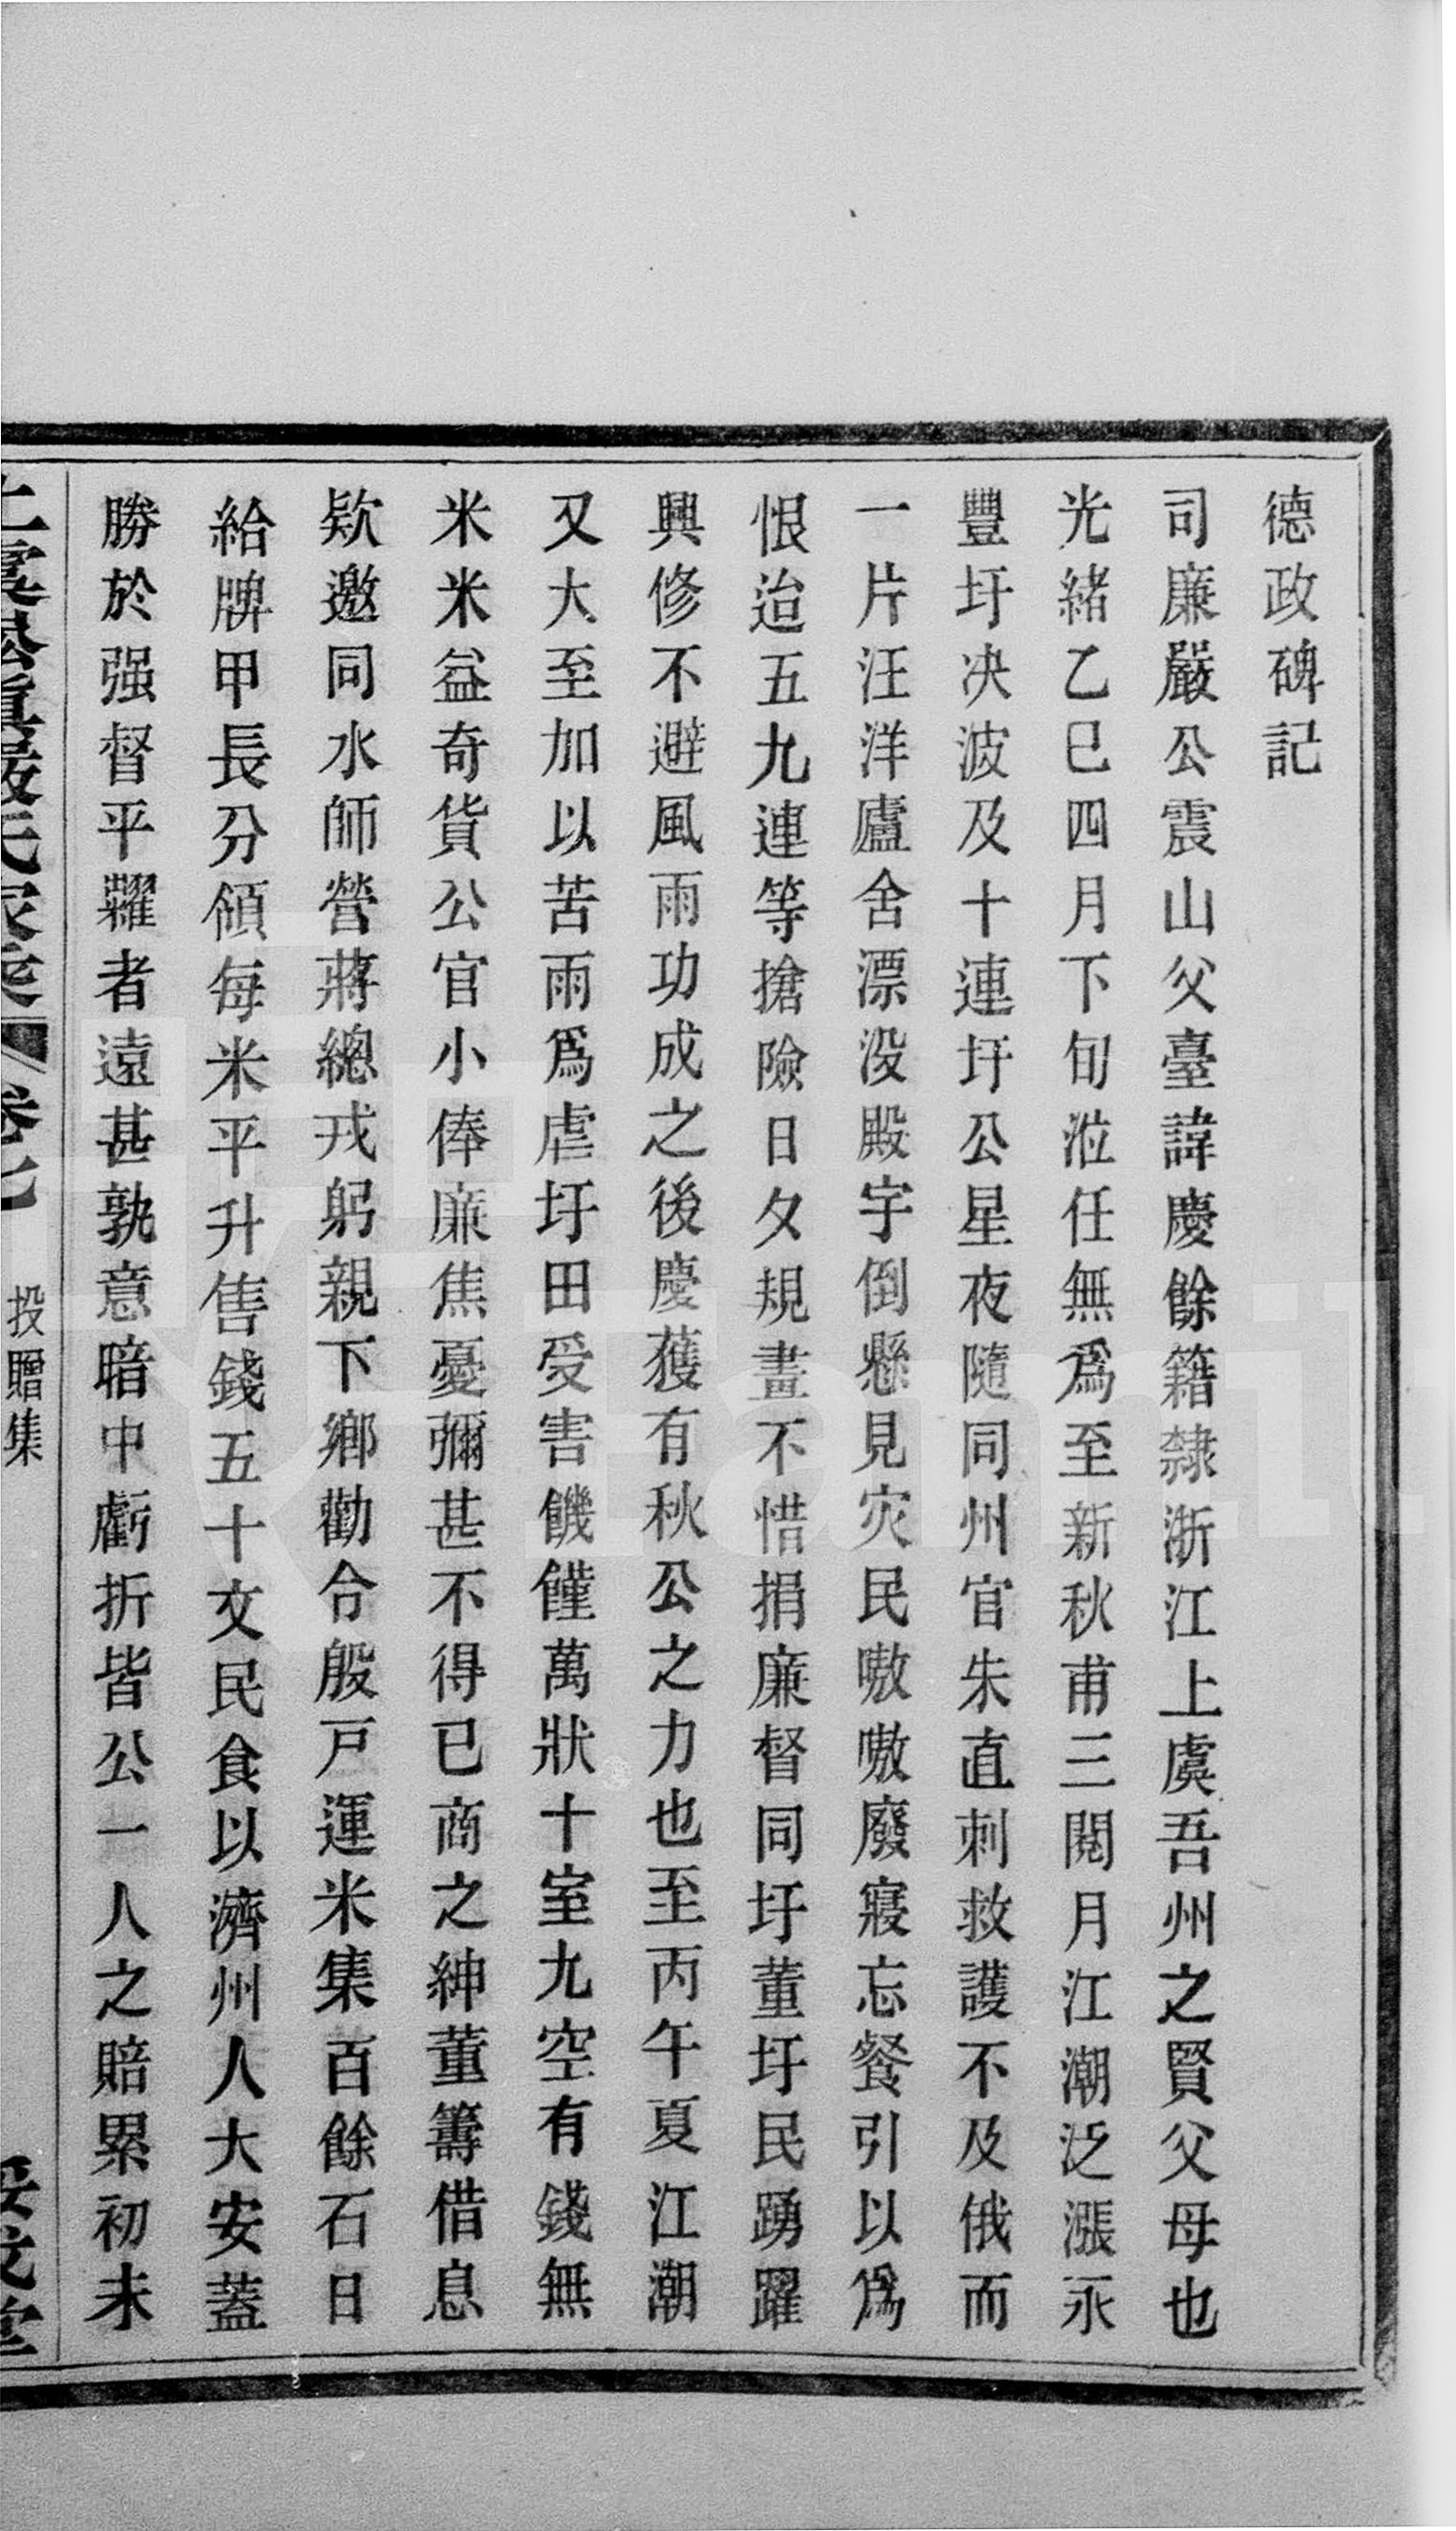 德政碑記
司廉嚴公震山父臺諱慶餘籍隸浙江上虞吾州之賢父母也
光緒乙巳四月下旬涖任無爲至新秋甫三閱月江潮泛漲永
豐圩决波及十連圩公星夜隨同州官朱直刺救護不及俄而
一片汪洋廬舍漂没殿宇倒懸見灾民嗷嗷廢寢忘餐引以爲
恨迨五九連等搶險日夕規畫不惜捐廉督同圩董圩民踴躍
興修不避風雨功成之後慶獲有秋公之力也至丙午夏江潮
又大至加以苦雨爲虐圩田受害饑饉萬狀十室九空有錢無
米米益奇貨公官小俸廉焦憂彌甚不得已商之紳董籌借息
欵邀同水師營蔣總戎躬親下鄉勸令殷戸運米集百餘石日
給牌甲長分領每米平升售錢五十文民食以濟州人大安蓋
勝於强督平糶者遠甚孰意暗中虧折皆公一人之賠累初未
上虞嚴氏家乘 卷七 投贈集